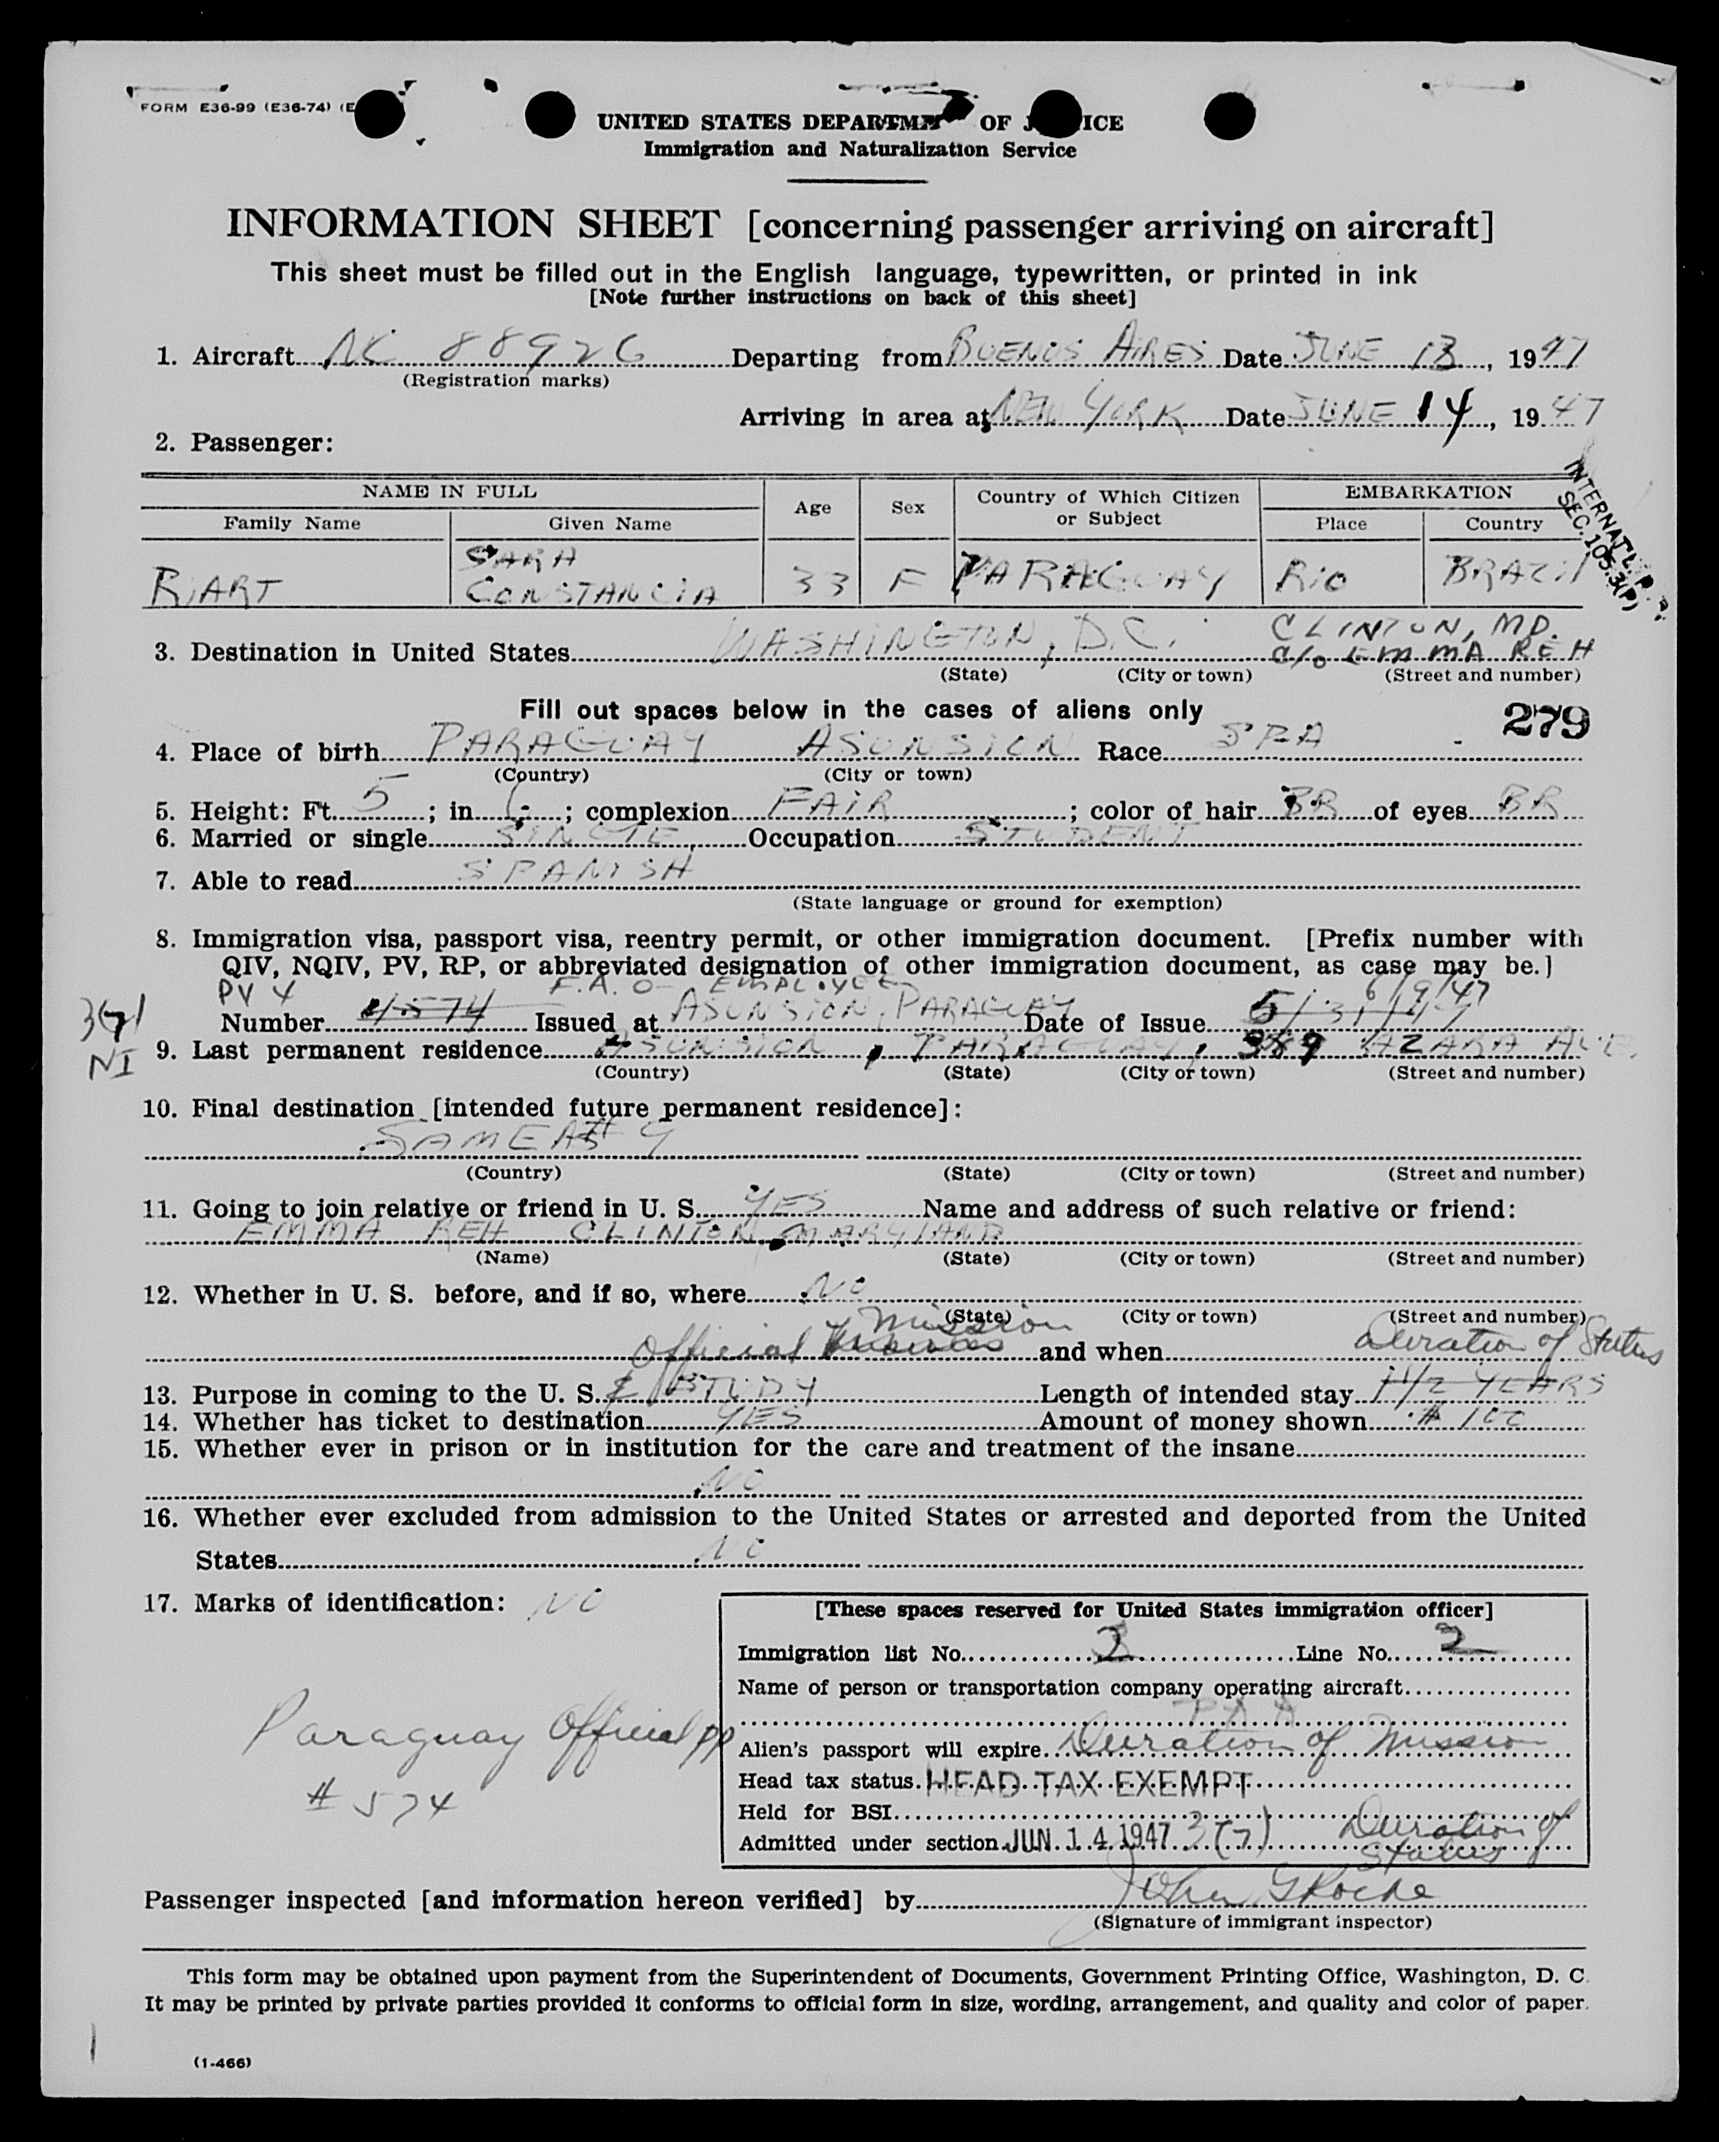 FORM E36-99 (E36-74) (E
UNITED STATES DEPARTME OF J ICE
Immigration and Naturalization Service
INFORMATION SHEET [concerning passenger arriving on aircraft]
This sheet must be filled out in the English language, typewritten, or printed in ink
[Note further instructions on back of this sheet]
1. Aircraft NC 88926 Departing from BUENOS AIRES Date JUNE 13, 1947
(Registration marks)
Arriving in area at NEW YORK Date JUNE 14, 1947
2. Passenger:
INTERNAT'L. P.
SEC. 105.3(P)
NAME IN FULL Age Sex Country of Which Citizen or Subject EMBARKATION
Family Name Given Name Place Country
RIART SARA CONSTANCIA 33 F PARAGUAY RIO BRAZIL
CLINTON, MD.
3. Destination in United States WASHINGTON, D.C. c/o EMMA REH
(State) (City or town) (Street and number)
Fill out spaces below in the cases of aliens only 279
4. Place of birth PARAGUAY ASUNSION Race SPA
(Country) (City or town)
5. Height: Ft. 5; in. 6; complexion FAIR; color of hair BR of eyes BR
6. Married or single SINGLE Occupation STUDENT
7. Able to read SPANISH
(State language or ground for exemption)
8. Immigration visa, passport visa, reentry permit, or other immigration document. [Prefix number with
QIV, NQIV, PV, RP, or abbreviated designation of other immigration document, as case may be.]
PV 4 F.A.O- EMPLOYEE 6/9/47
Number Issued at ASUNSION, PARAGUAY Date of Issue 5/31/47
3(7)
NI
9. Last permanent residence ASUNSION, PARAGUAY, 389 AZARA AVE.
(Country) (State) (City or town) (Street and number)
10. Final destination [intended future permanent residence]:
SAME AS # 9
(Country) (State) (City or town) (Street and number)
11. Going to join relative or friend in U. S. YES Name and address of such relative or friend:
EMMA REH CLINTON, MARYLAND
(Name) (State) (City or town) (Street and number)
12. Whether in U. S. before, and if so, where NO
(State) (City or town) (Street and number)
Mission
Official and when Duration of Status
13. Purpose in coming to the U. S. & STUDY Length of intended stay 1 1/2 YEARS
14. Whether has ticket to destination YES Amount of money shown $ 100
15. Whether ever in prison or in institution for the care and treatment of the insane
NO
16. Whether ever excluded from admission to the United States or arrested and deported from the United
States NO
17. Marks of identification: NO
Paraguay Official pp
# 574
[These spaces reserved for United States immigration officer]
Immigration list No. 2 Line No. 2
Name of person or transportation company operating aircraft
PAA
Alien's passport will expire Duration of Mission
Head tax status HEAD TAX EXEMPT
Held for BSI
Admitted under section JUN 14 1947 3(7) Duration of Status
Passenger inspected [and information hereon verified] by John G Roche
(Signature of immigrant inspector)
This form may be obtained upon payment from the Superintendent of Documents, Government Printing Office, Washington, D. C.
It may be printed by private parties provided it conforms to official form in size, wording, arrangement, and quality and color of paper.
(1-466)